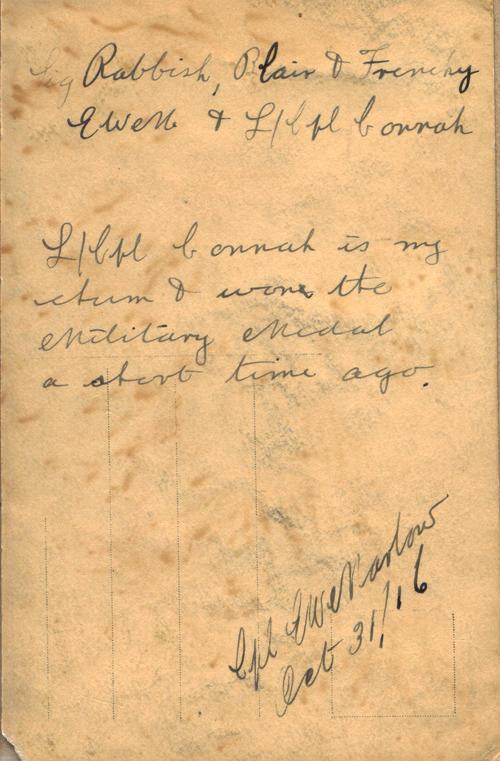 Sig Rabbish, Blair & Frenchy
Ewell & L/Cpl Connah
L/Cpl Connah is my
chum & wons the
Military Medal
a short time ago.
Cpl
Oct 31/16